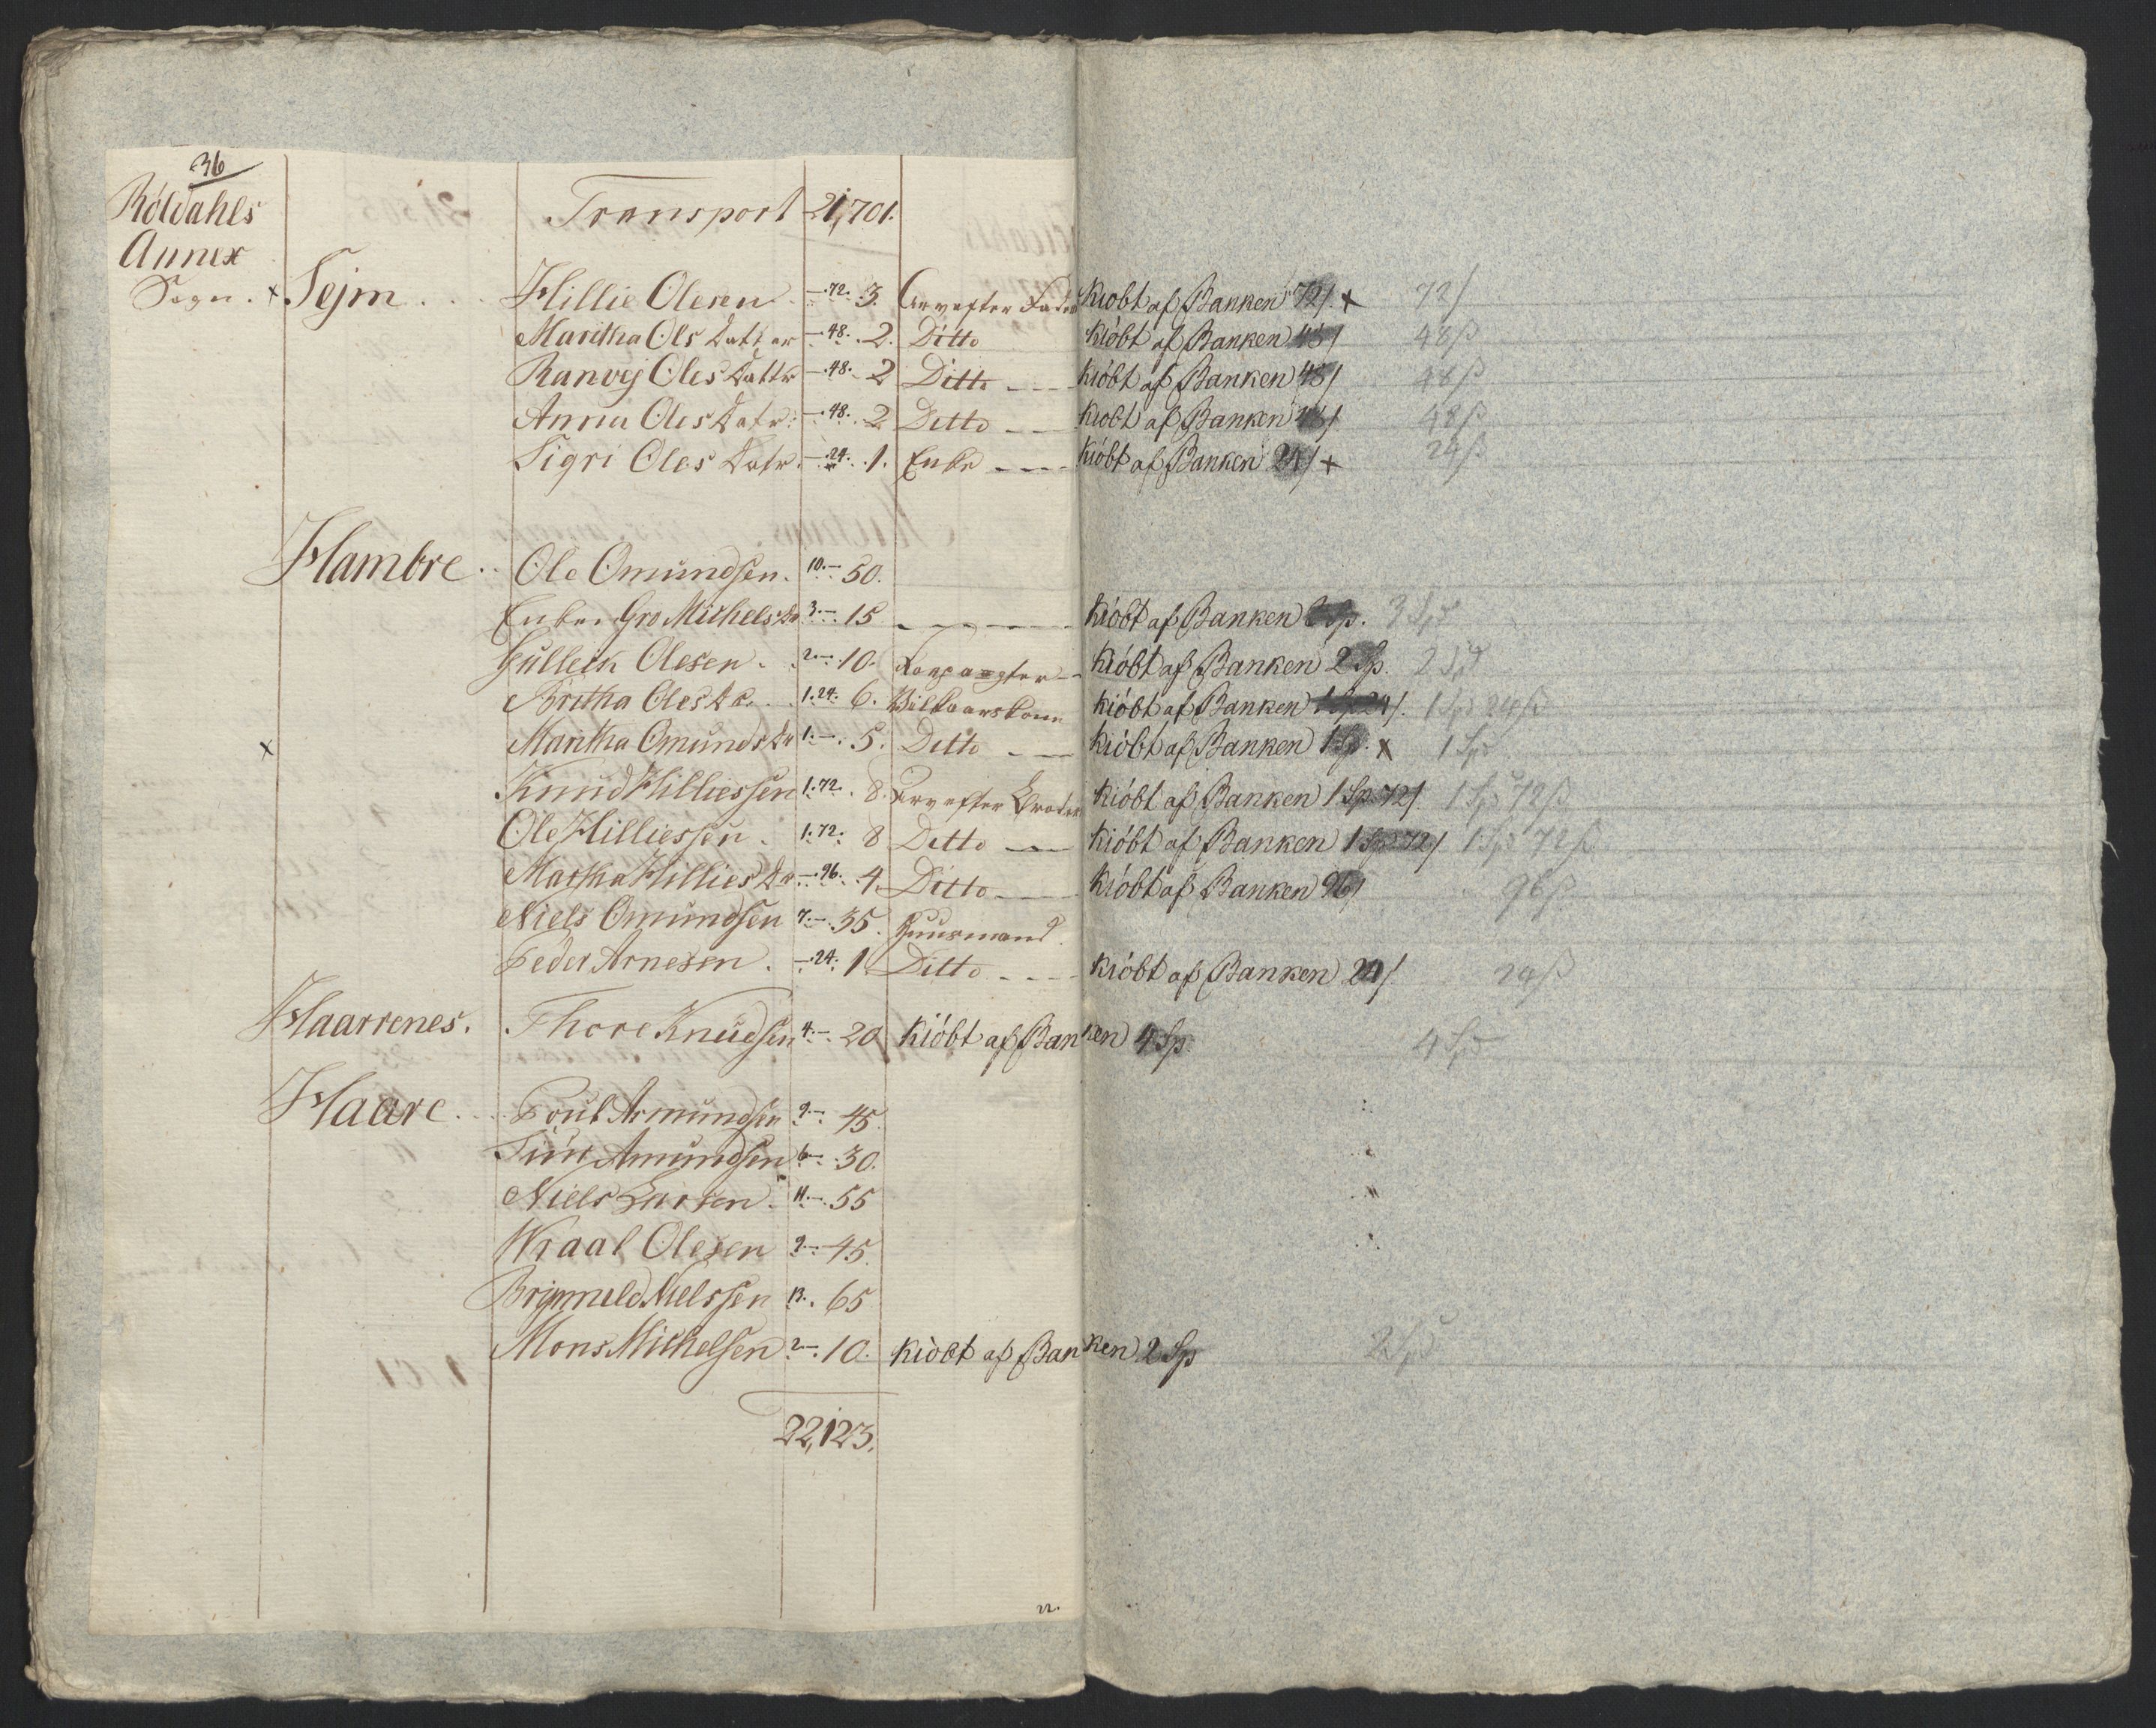 36
Röldahls Transport 21,701.
Annex
Sogn. x Sejm . . Hillie Olesen —.72. 3. Arv efter Fader kiöbt af Banken 72/. x 72/
Maritha Ols Datter —.48. 2. Ditto kiöbt af Banken 48/ 48ß
Ranvej Oles Dattr —.48. 2 Ditto kiöbt af Banken 48/ 48ß
Anna Oles Datr: —.48. 2 Ditto kiöbt af Banken 48/ 48ß
Sigri Oles Datr. —.24. 1. Enke kiöbt af Banken 24/ x 24ß
Hambre . . Ole Omundsen. 10.— 50.
Enken Gro Michels Dr 3.— 15 kiöbt af Banken 3 Sp. 3 Spd
Gulleck Olesen . 2.— 10. kiöbt af Banken 2 Sp. 2 Spd
Britha Oles Dr. 1.24. 6. Vilkaarskone kiöbt af Banken 1 Sp 24/. 1 Spd 24ß
x Maritha Omunds Dr 1.—. 5. Ditto kiöbt af Banken 1 Sp. x 1 Spd
Knud Hilliessen 1.72. 8. Arv efter kiöbt af Banken 1 Sp 72/. 1 Spd 72ß
Ole Hilliessen . 1.72. 8 Ditto kiöbt af Banken 1 Sp 72/ 1 Spd 72ß
Martha Hillies Dr —.96. 4. Ditto kiöbt af Banken 96/ 96ß
Niels Omundsen 7.— 35. Huusmand
Peder Arnesen . —.24. 1 Ditto kiöbt af Banken 24/ 24ß
Haarrenes. Thore Knudsen 4.— 20 kiöbt af Banken 4 Sp. 4 Spd
Haare . . . Poul Asmundsen 9.— 45.
Amundsen 6— 30.
Niels Larsen . 11.— 55
Wraal Olesen 9.— 45.
Brynnild Nielssen 13. 65
Mons Michelsen 2—. 10. kiöbt af Banken 2 Sp 2 Spd
22,123.
22.